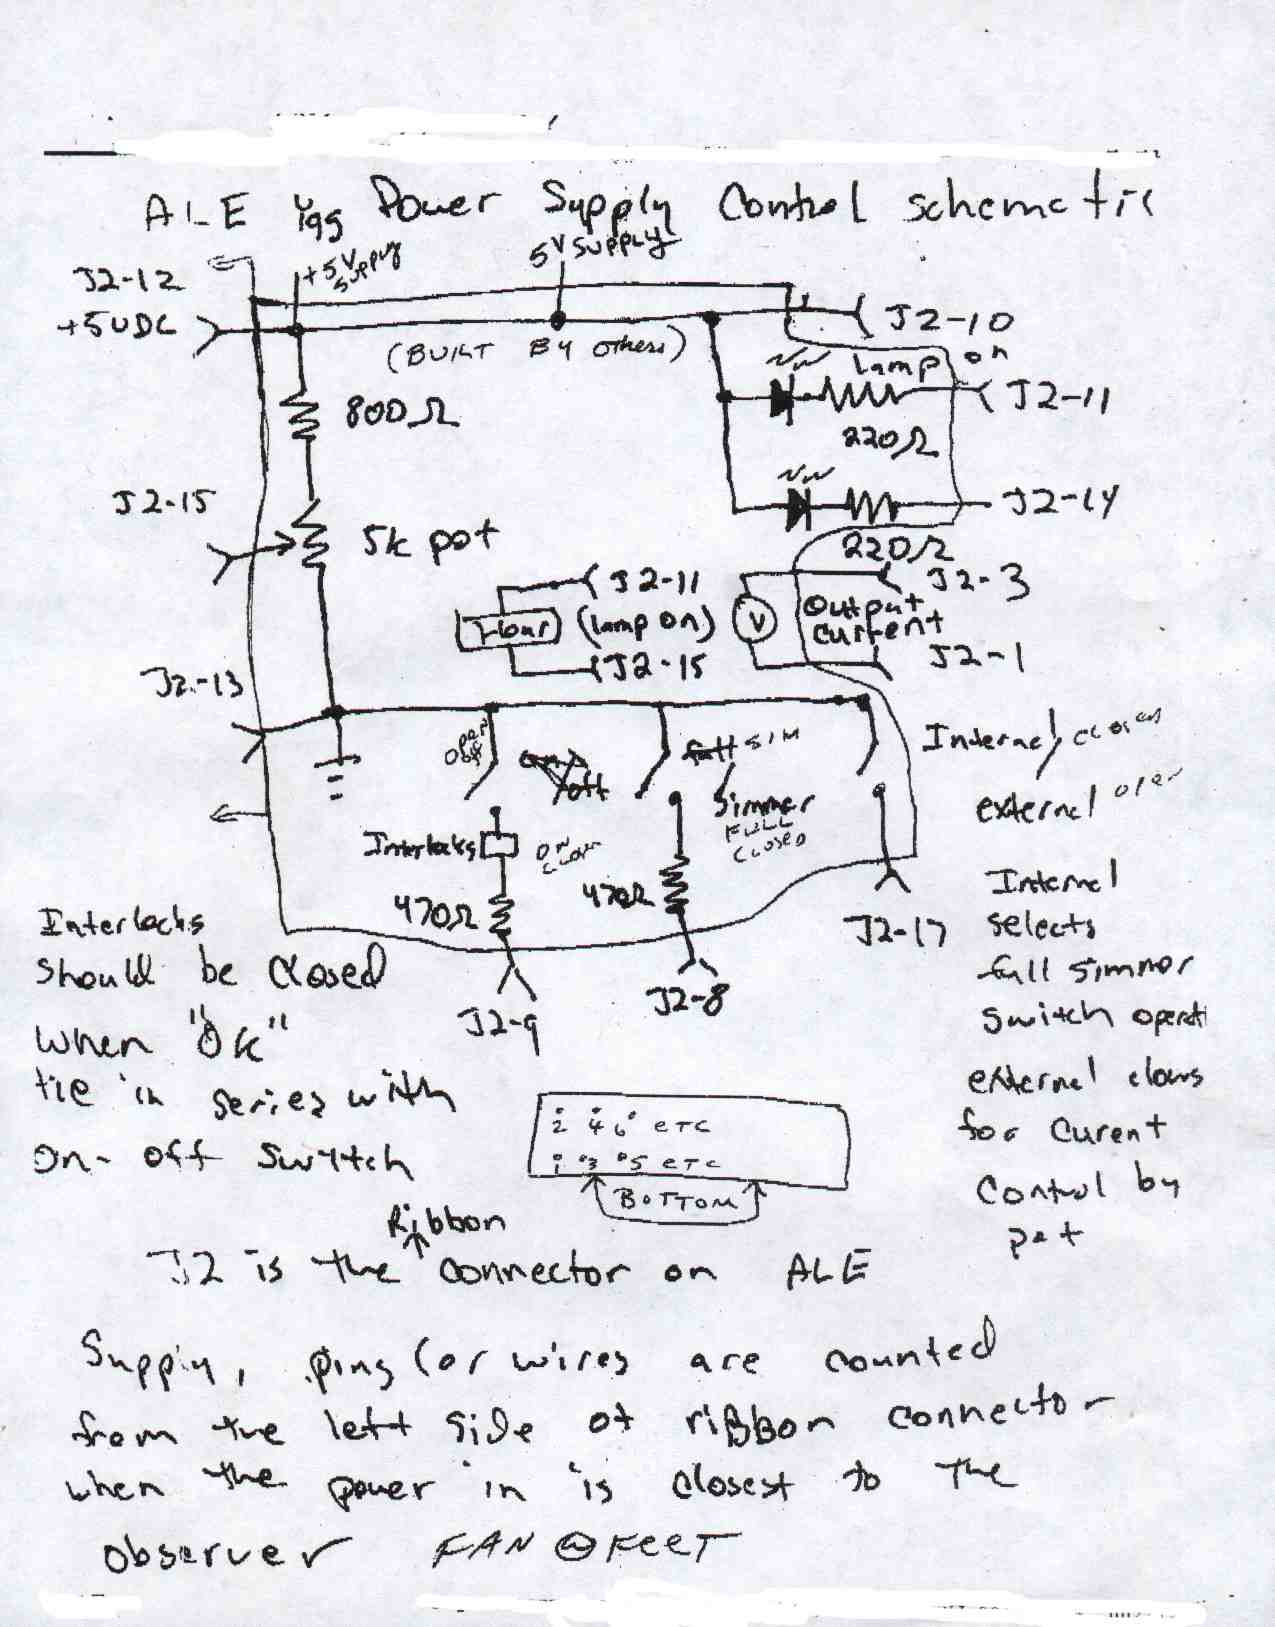 ALE Power Supply Control schematic
J2-12
+5V supply
5V SUPPLY
+5VDC
J2-10
(BUILT BY OTHERS)
lamp on
J2-11
800Ω
220Ω
J2-15
J2-14
5k pot
220Ω
J2-11
J2-3
Hour
(lamp on)
V
Output current
J2-15
J2-1
J2-13
open
off
off
full SIM
Internal / closed
Simmer
external open
FULL
CLOSED
Interlocks
ON
470Ω
470Ω
J2-9
J2-8
J2-17
Internal
selects
full simmer
switch operati
external alows
for Curent
Control by
pot
Interlocks
should be closed
when "ok"
tie in series with
on-off switch
2 4 6 ETC
1 3 5 ETC
BOTTOM
Ribbon
J2 is the connector on ALE
Supply, pins (or wires are counted
from the left side of ribbon connector
when the power in is closest to the
observer FAN @ FEET